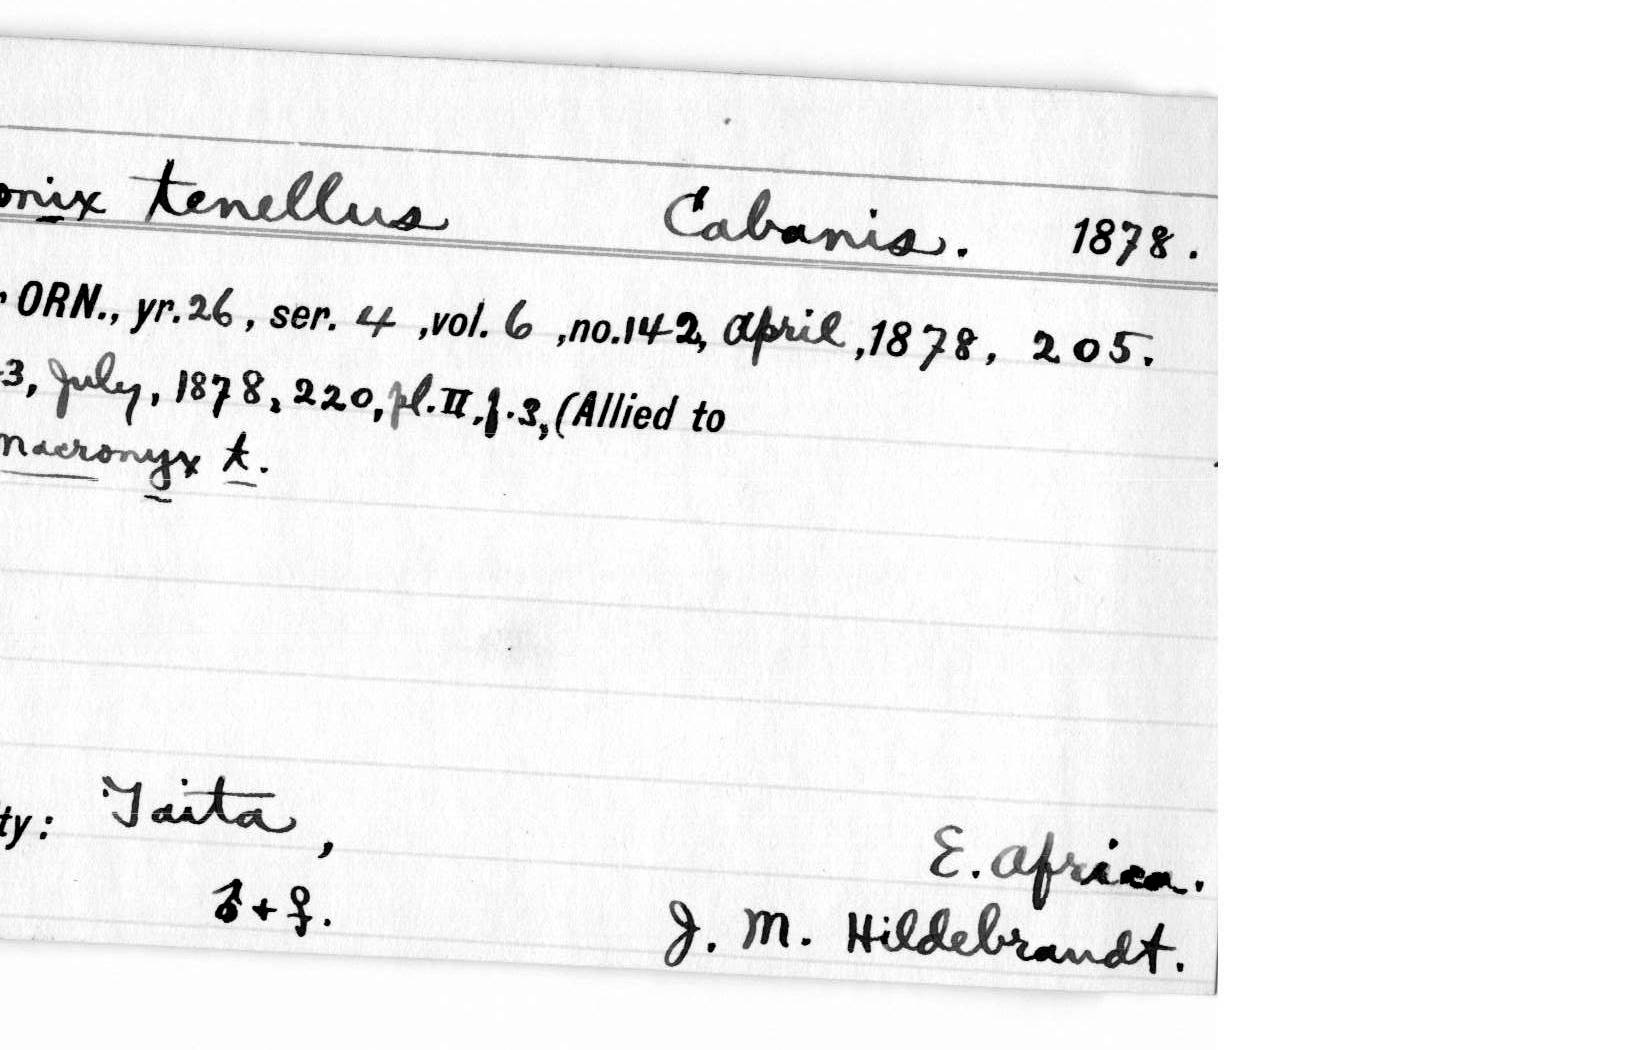 onix tenellus Cabanis. 1878.
ORN., yr. 26, ser. 4, vol. 6, no. 142, April, 1878, 205.
3, July, 1878, 220, pl. II. f. 3, (Allied to
macronyx t.
ty: Taita, E. Africa.
♂ + ♀. J. M. Hildebrandt.